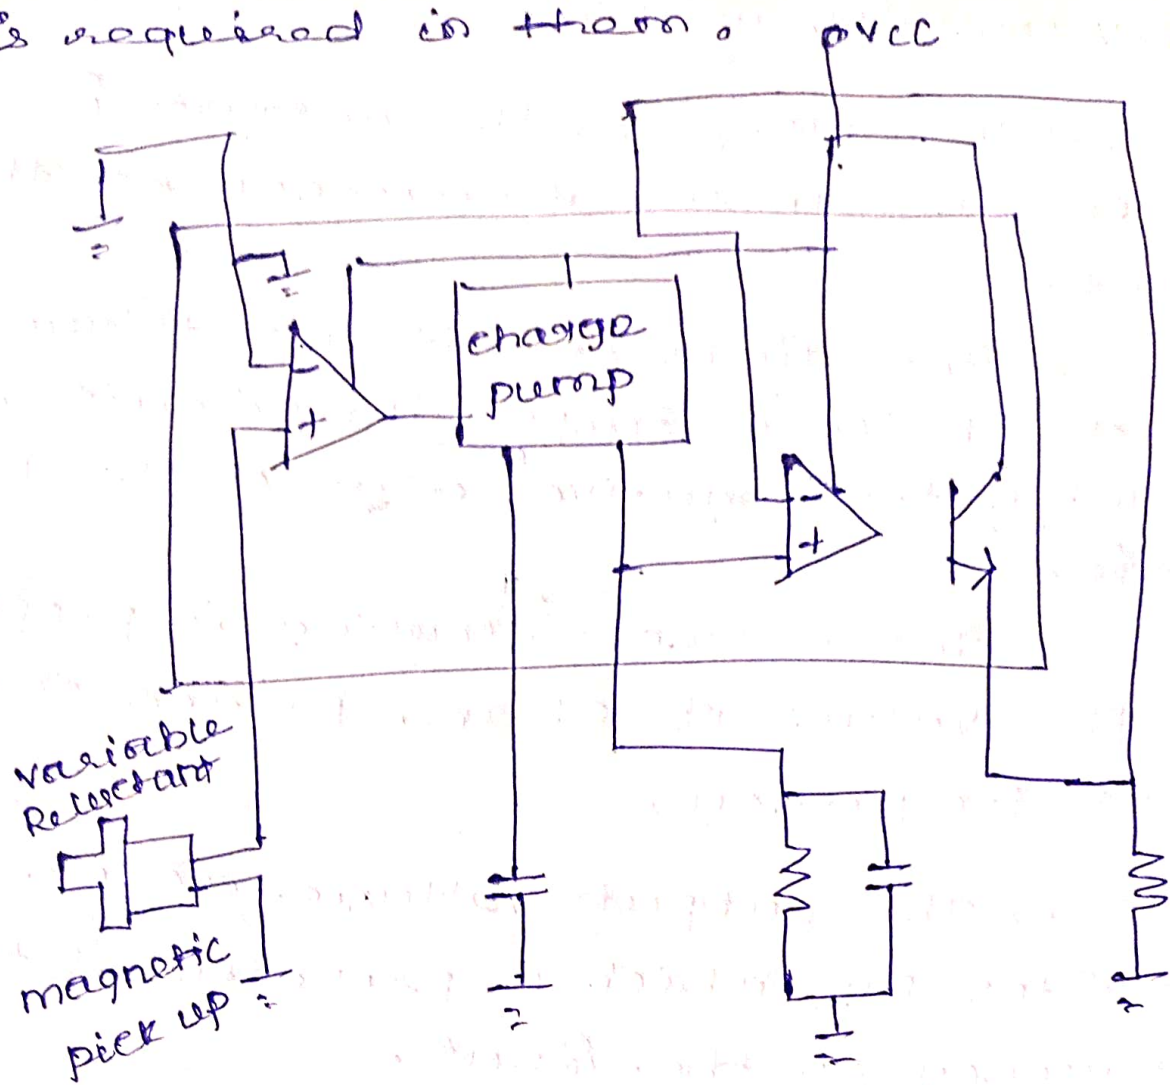 's required in them. VCC
charge
pump
-
+
-
+
variable
Reluctant
magnetic
pick up